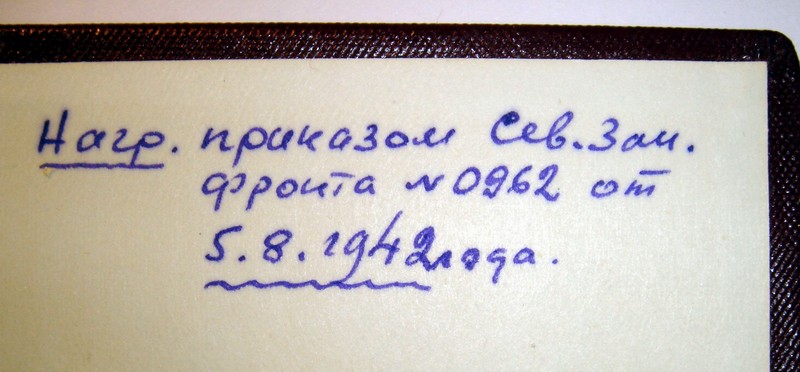 Нагр. приказом Сев. Зап.
фронта № 0962 от
5.8.1942 года.